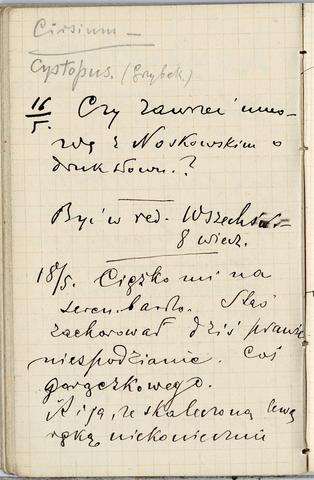 Cirsium —
Cystopus. (Grzybek.)
16/5. Czy zawrzeć umo-
wę z Noskowskim o
druk słown.?
Być w red. Wszechśw.
8 wiecz.
18/5. Ciężko mi na
seren. bardzo. Staś
zachorował dziś prawie
niespodzianie. Coś
gorączkowego.
że skaleczoną lewą
ręką, niekoniecznie